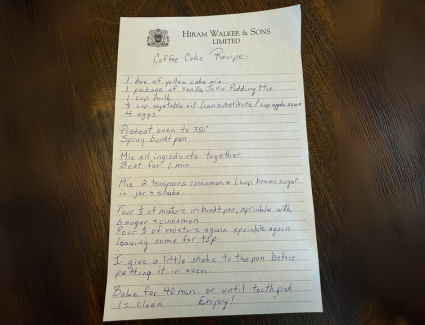 HIRAM WALKER & SONS
LIMITED
Coffee Cake Recipe.
1 box of yellow cake mix
1 package of Vanilla Jello Pudding Mix
1 cup milk
cup vegetable oil (can substitute 1 cup apple sauce
4 eggs
Preheat oven to 350°
Spray bundt pan
Mix all ingredients together
Beat for 1 min
Mix 2 teaspoons cinnamon & 1 cup brown sugar
in jar & shake.
Pour of mixture in bundt pan, sprinkle with
b sugar & cinnamon
Pour of mixture again sprinkle again
leaving some for top.
I give a little shake to the pan before
putting it in oven.
Bake for 40 min. or until toothpick
is clean. Enjoy!